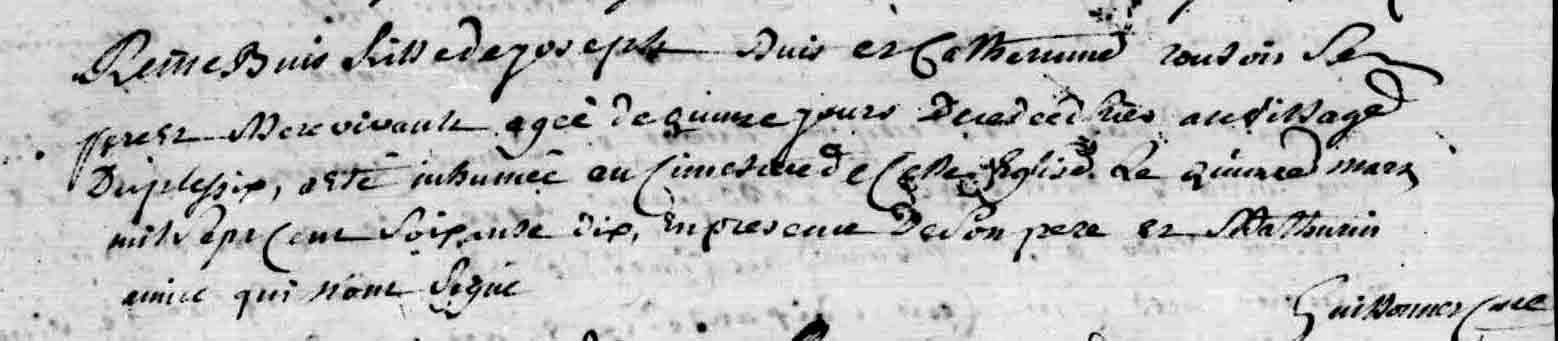 Reine Buis fille de joseph Buis et Catherinne rousois Ses
pere et Mere vivante agee de quinze jours Decedeé hier au village
Duplessix, a eté inhumeé au Cimetiere de Cette Eglise Le quinze mars
mil sept Cent Soixante dix, En presence De Son pere et Mathurin
amice qui n'ont Signé
Guillonnet Curé